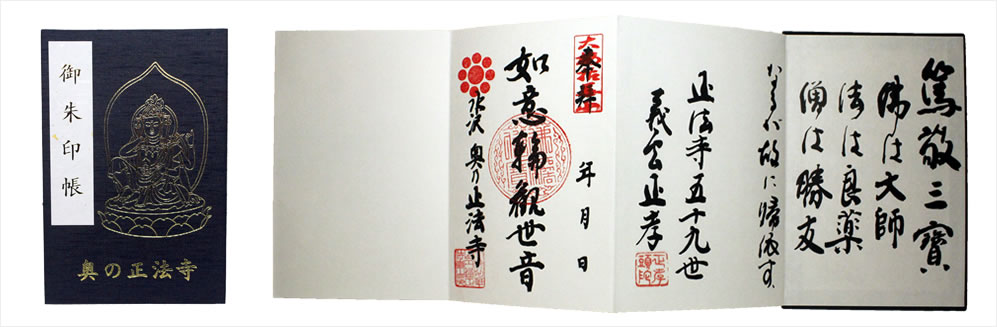 御朱印帳
奥の正法寺
篤敬三寳
佛は大師
法は良薬
僧は勝友
なるが故に帰依す
正法寺五十九世
義公正孝
奉拝
年月日
如意輪觀世音
水沢 奥の正法寺